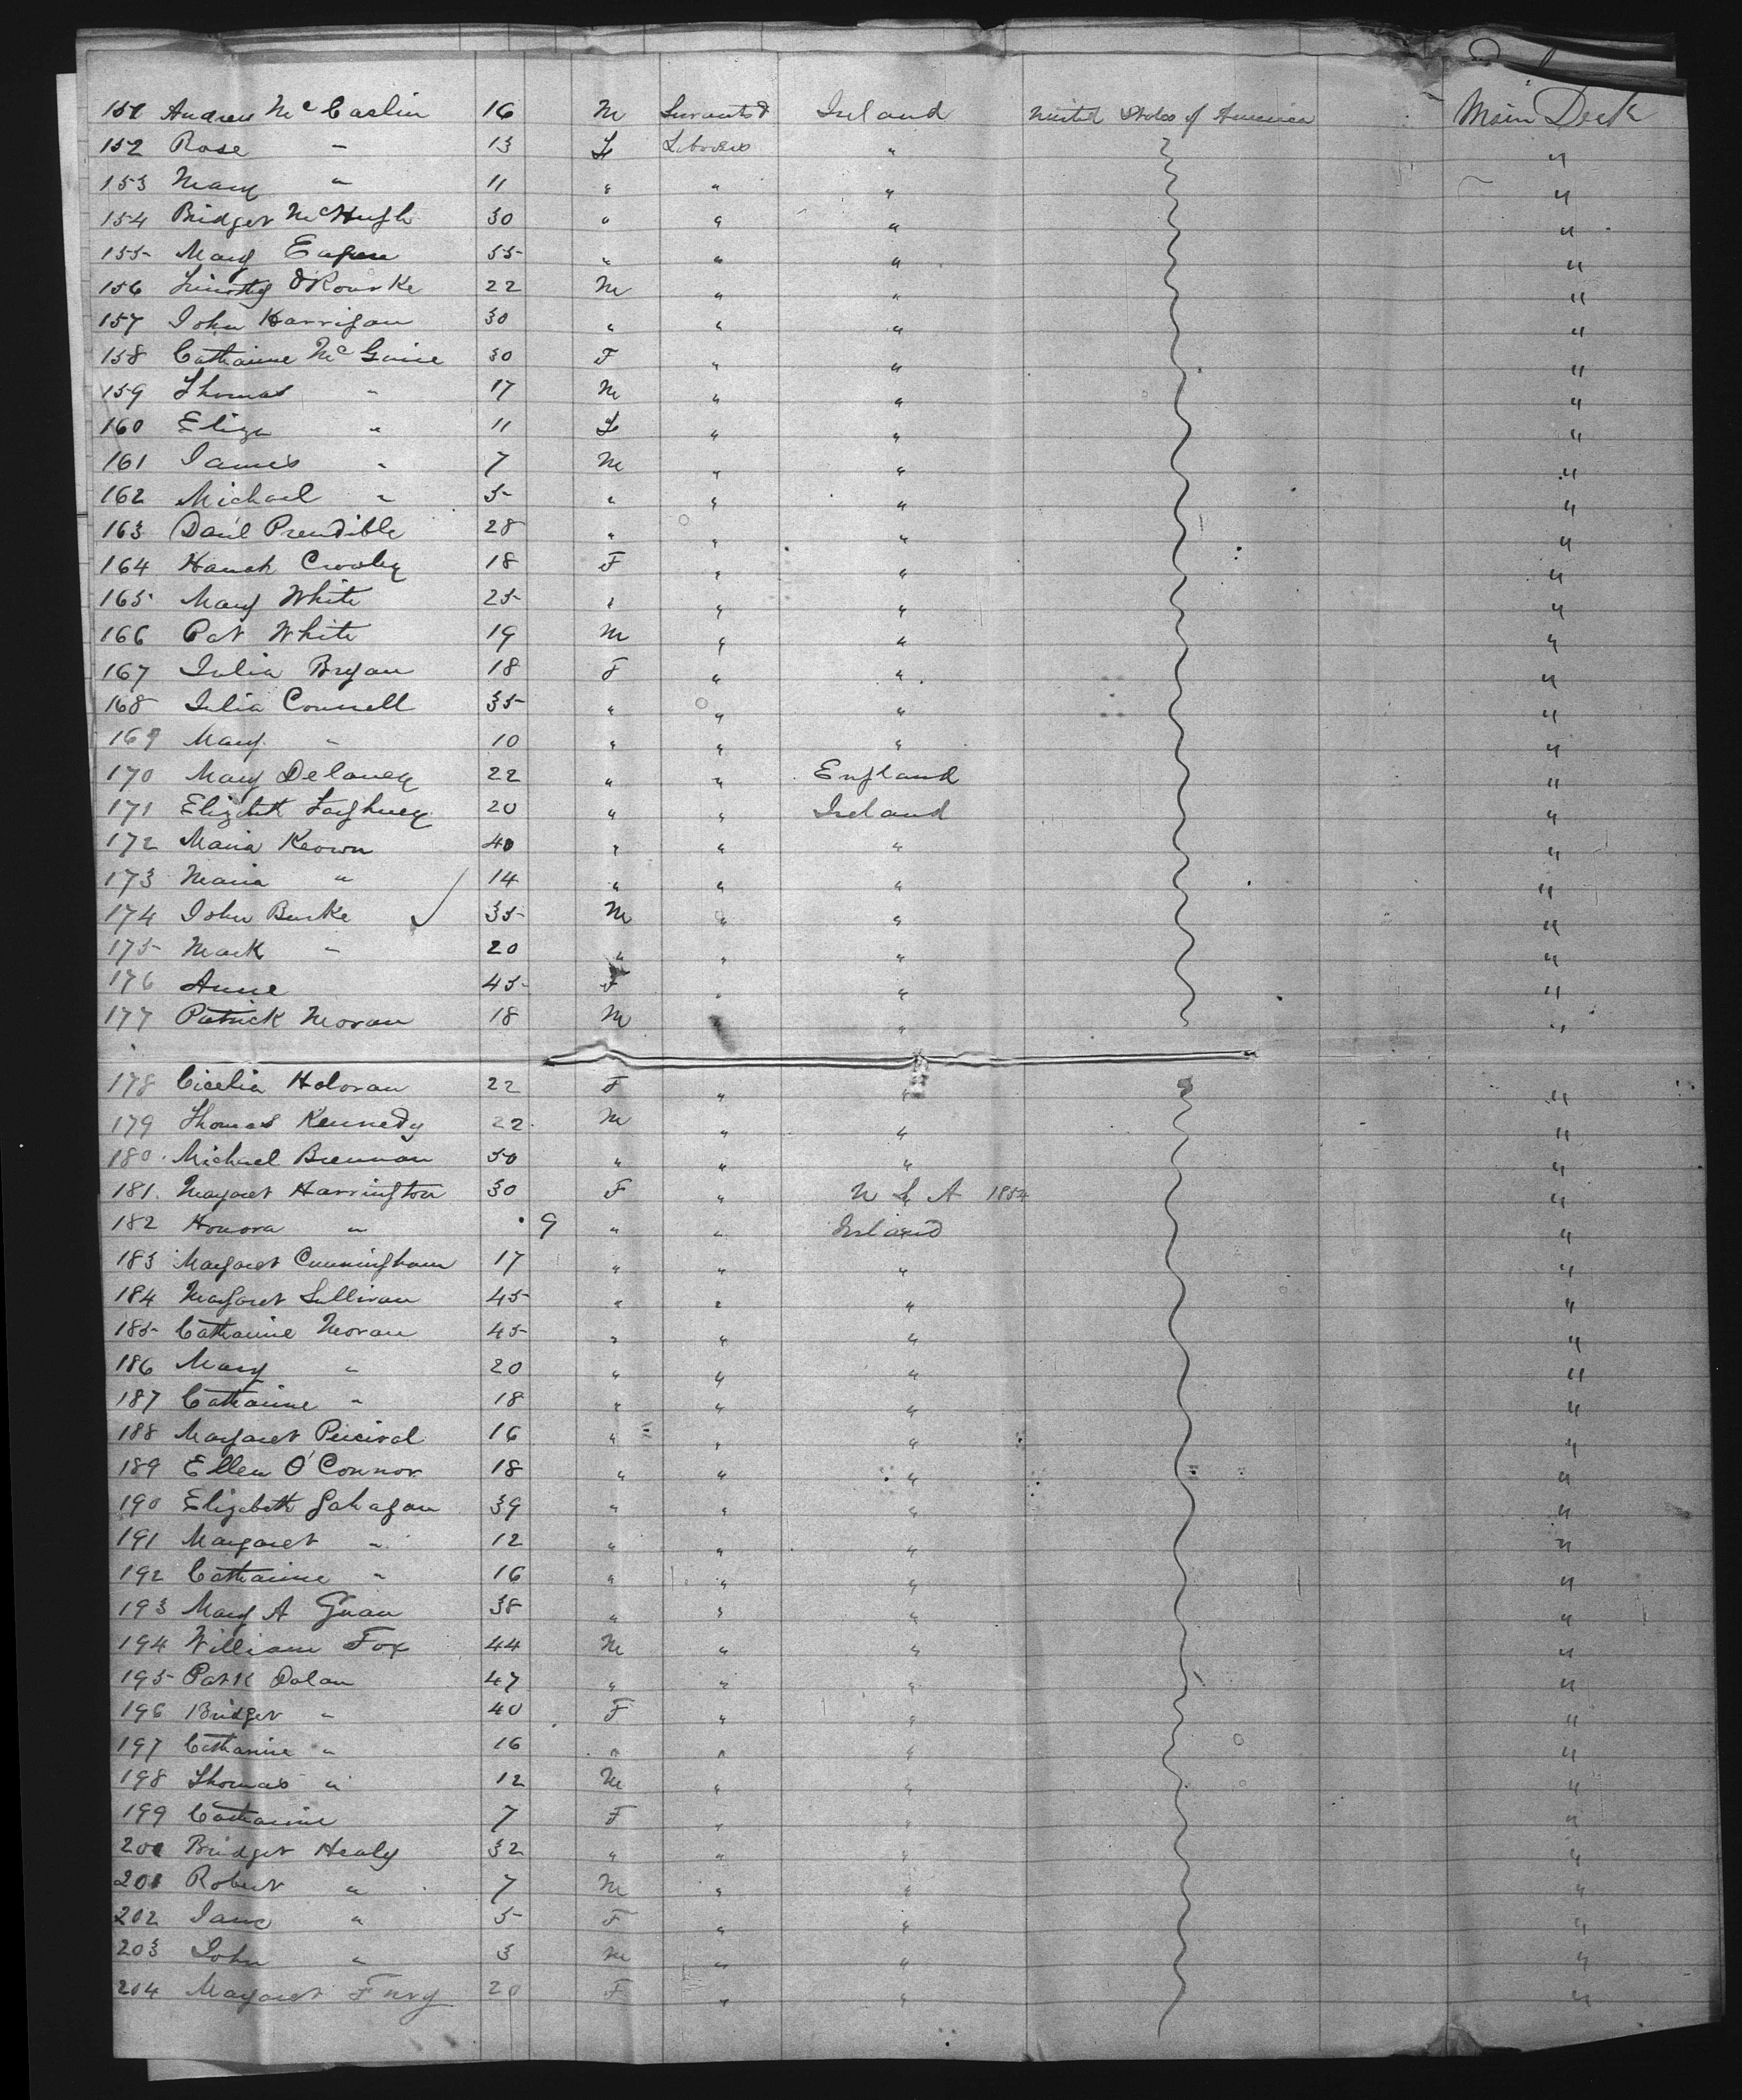 151 Andrew McCaslin 16 M Servants & Ireland United States of America Main Deck
152 Rose " 13 F Laborers " "
153 Mary " 11 " " " "
154 Bridget McHugh 30 " " " "
155 Mary Eagan 55 " " " "
156 Timothy O'Rourke 22 M " " "
157 John Harrigan 30 " " " "
158 Catharine McGuire 30 F " " "
159 Thomas " 17 M " " "
160 Eliza " 11 F " " "
161 James " 7 M " " "
162 Michael " 5 " " " "
163 Danl Prendible 28 " " " "
164 Hanah Crowley 18 F " " "
165 Mary White 25 " " " "
166 Pat White 19 M " " "
167 Julia Bryan 18 F " " "
168 Julia Connell 35 " " " "
169 Mary " 10 " " " "
170 Mary Delaney 22 " " England "
171 Elizabeth 20 " " Ireland "
172 Maria Keown 40 " " " "
173 Maria " 14 " " " "
174 John Burke 35 M " " "
175 Mark " 20 " " " "
176 Anne 45 F " " "
177 Patrick Moran 18 M " " "
178 Cicelia Holoran 22 F " " "
179 Thomas Kennedy 22 M " " "
180 Michael Brennan 50 " " " "
181 Margaret Harrington 30 F " U S A 1854 "
182 Honora " 9 " " Ireland "
183 Margaret Cunningham 17 " " " "
184 Margaret Sullivan 45 " " " "
185 Catharine Moran 45 " " " "
186 Mary " 20 " " " "
187 Catharine " 18 " " " "
188 Margaret Percival 16 " " " "
189 Ellen O'Connor 18 " " " "
190 Elizabeth Gahagan 39 " " " "
191 Margaret " 12 " " " "
192 Catharine " 16 " " " "
193 Mary A 38 " " " "
194 William Fox 44 M " " "
195 Patk Dolan 47 " " " "
196 Bridget " 40 F " " "
197 Catharine " 16 " " " "
198 Thomas " 12 M " " "
199 Catharine 7 F " " "
200 Bridget Healy 32 " " " "
201 Robert " 7 M " " "
202 Jane " 5 F " " "
203 John " 3 M " " "
204 Margaret Fury 20 F " " "